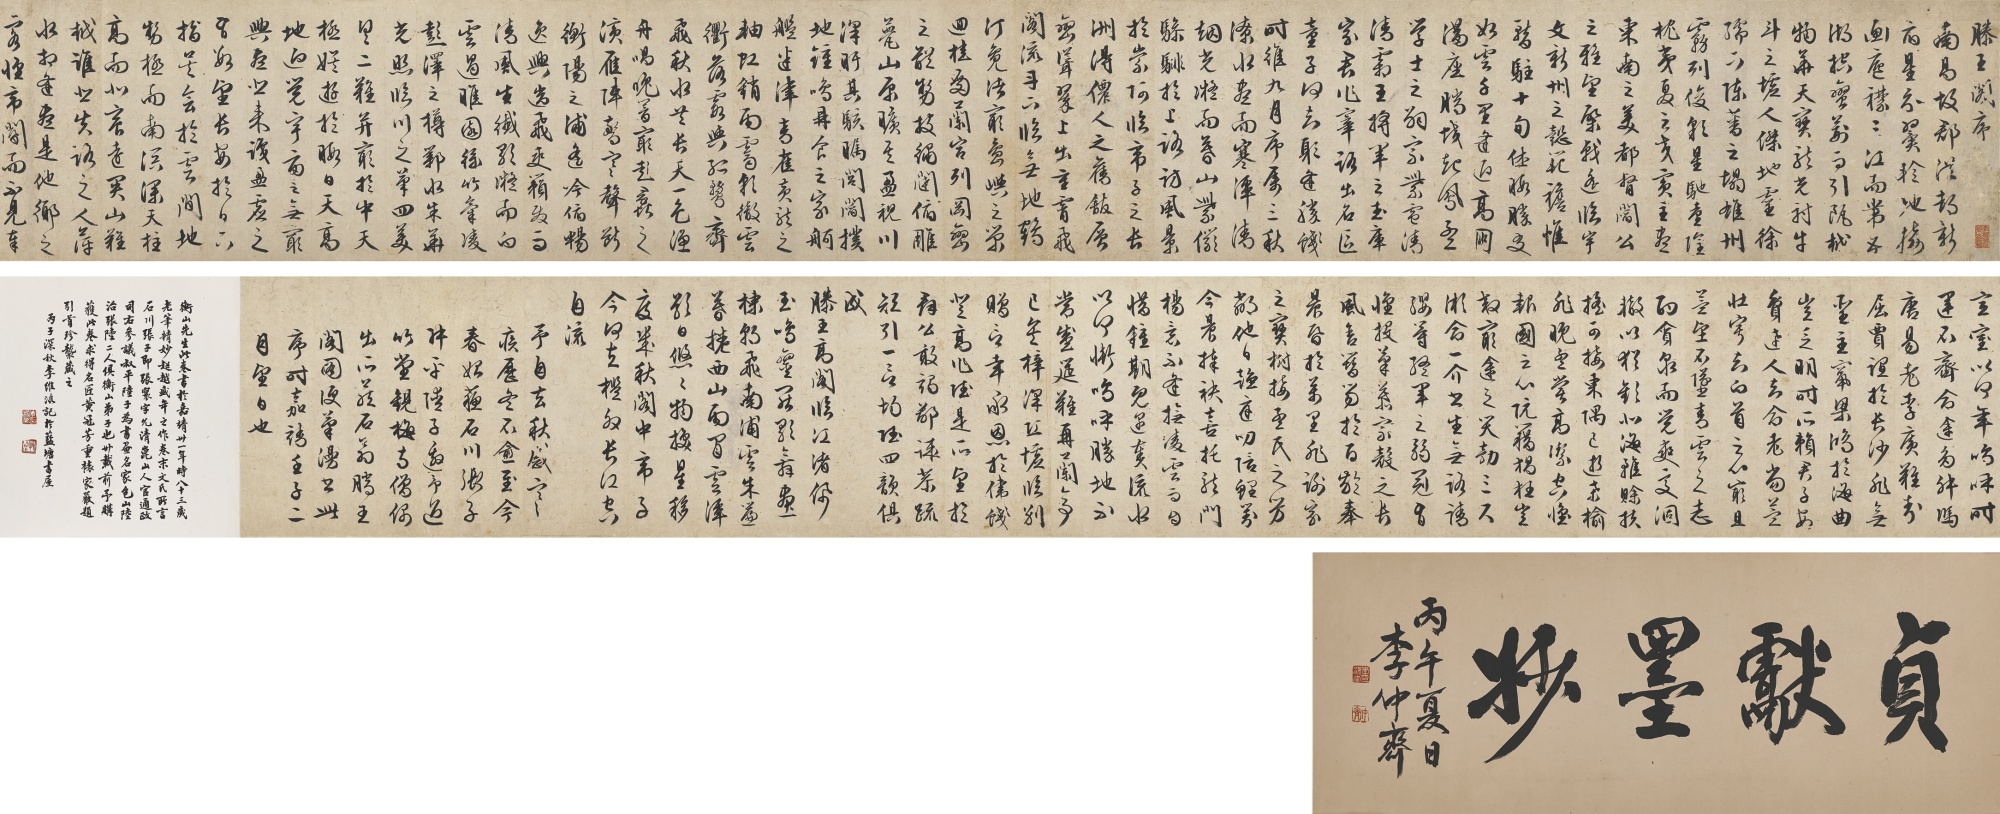 滕王閣序
南昌故郡洪都新
府星分翼軫地接
衡廬襟三江而帶五
湖控蠻荊而引甌越
物華天寶龍光射牛
斗之墟人傑地靈徐
孺下陳蕃之榻雄州
霧列俊彩星馳臺隍
枕夷夏之交賓主盡
東南之美都督閻公
之雅望棨戟遙臨宇
文新州之懿範襜帷
暫駐十旬休暇勝友
如雲千里逢迎高朋
滿座騰蛟起鳳孟
學士之詞宗紫電清
清霜王將軍之武庫
家君作宰路出名區
童子何知躬逢勝餞
時維九月序屬三秋
潦水盡而寒潭清
烟光凝而暮山紫儼
驂騑於上路訪風景
於崇阿臨帝子之長
洲得仙人之舊館層
巒聳翠上出重霄飛
閣流丹下臨無地鶴
汀鳧渚窮島嶼之縈
迴桂殿蘭宮列岡巒
之體勢披繡闥俯雕
甍山原曠其盈視川
澤盱其駭矚閭閻撲
地鐘鳴鼎食之家舸
艦迷津青雀黃龍之
軸虹銷雨霽彩徹雲
衢落霞與孤鶩齊
飛秋水共長天一色漁
舟唱晚響窮彭蠡之
濱雁陣驚寒聲斷
衡陽之浦遙吟俯暢
逸興遄飛爽籟發而
清風生纖歌凝而白
雲遏睢園綠竹氣凌
彭澤之樽鄴水朱華
光照臨川之筆四美
具二難并窮於中天
極娛遊於暇日天高
地迥覺宇宙之無窮
興盡悲來識盈虛之
有數望長安於日下
指吳會於雲間地
勢極而南溟深天柱
高而北辰遠關山難
越誰悲失路之人萍
水相逢盡是他鄉之
客懷帝閽而不見奉
宣室以何年嗚呼時
運不齊命途多舛馮
唐易老李廣難封
屈賈誼於長沙非無
聖主竄梁鴻於海曲
豈乏明時所賴君子安
貧達人知命老當益
壯寧知白首之心窮且
益堅不墜青雲之志
酌貪泉而覺爽處涸
轍以猶歡北海雖賒扶
搖可接東隅已逝桑榆
非晚孟嘗高潔空懷
報國之心阮籍猖狂豈
效窮途之哭勃三尺
微命一介書生無路請
纓等終軍之弱冠有
懷投筆慕宗愨之長
風舍簪笏於百齡奉
晨昏於萬里非謝家
之寶樹接孟氏之芳
鄰他日趨庭叨陪鯉對
今晨捧袂喜托龍門
楊意不逢撫凌雲而自
惜鍾期既遇奏流水
以何慚嗚呼勝地不
常盛筵難再蘭亭
已矣梓澤丘墟臨別
贈言幸承恩於偉餞
登高作賦是所望於
群公敢竭鄙誠恭疏
短引一言均賦四韻俱
成
滕王高閣臨江渚佩
玉鳴鸞罷歌舞畫
棟朝飛南浦雲朱簾
暮捲西山雨閒雲潭
影日悠悠物換星移
度幾秋閣中帝子
今何在檻外長江空
自流
予自去秋感寒
疾歷冬不愈至今
春始蘇石川張子
叔平陸子邀予過
竹堂觀梅寺僧偶
出所藏石翁騰王
閣圖便筆漫書此
序時嘉靖壬子二
月望日也
衡山先生此卷書於嘉靖卅一年時八十三歲
老筆精妙超越盛年之作卷末文氏所言
石川張子即張寰字允清崑山人官通政
司右參議叔平陸子為書畫名家包山陸
治張陸二人俱衡山弟子也卅載前予購
獲此卷求得名匠黃冠芳重裱家嚴題
引首珍襲藏之
丙子深秋李維滇記於藍塘書屋
貞獻墨妙
丙午夏日
李仲齋